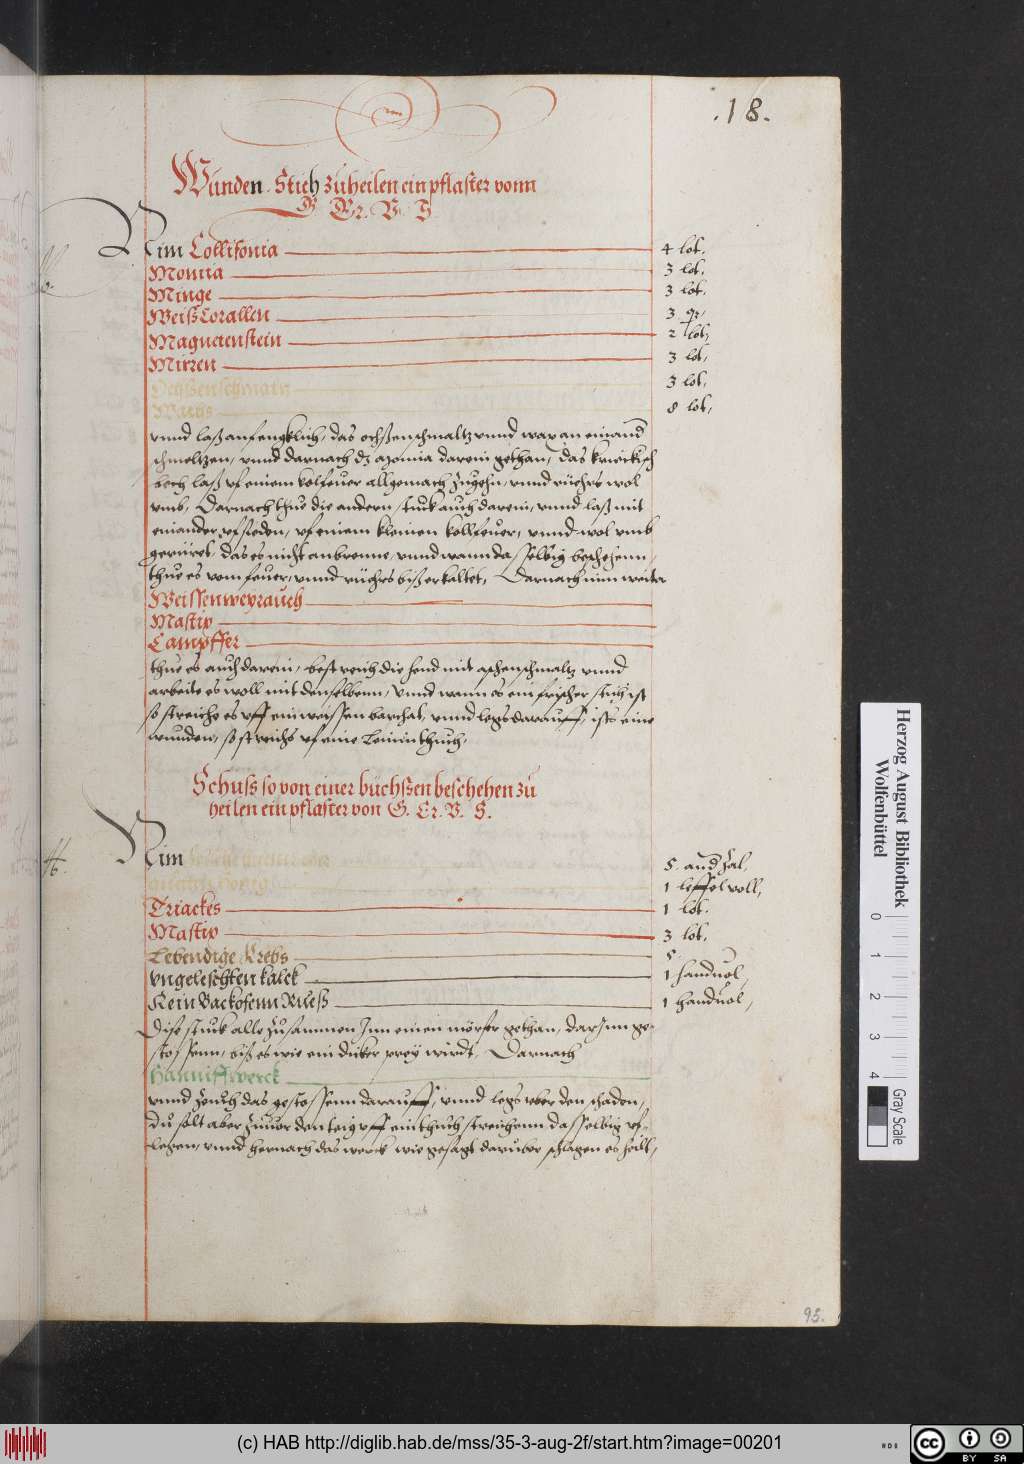 .18.
Wunden Stich zuheilen ein pflaster vonn
G. Er. V. S.
Nim Collifonia 4 lot.
Momia 3 lot.
Minge 3 lot.
Weiß Corallen 3
Magnetenstein 2 lot
Mirren 3 lot,
Ochssenschmaltz 3 lot,
Wachs 8 lot,
vnnd laß anfengklich, das ochssenschmaltz vnnd wax an einand
schmeltzen, vnnd darnach dz momia darein gethan, das
bech laß vf einem kolfeuer allgemach zugehn, vnnd rüehrs wol
vmb, Darnach thue die andern stuck auch darein, vnnd laß mit
einander vfsieden, vf einem kleinen kollfeuer, vnnd wol vmb
gerüret, das es nicht anbrenne, vnnd wann dasselbig beschehenn,
thue es vom feuer, vnnd rüehrs biß erkaltet, Darnach nim weiter
Weissen weyrauch
Mastix
Campffer
thue es auch darein, bestreich die hend mit schmaltz vnnd
arbeite es woll mit denselbenn, Vnnd wann es ein frischer stich ist
so streiche es vff ein weissen barchat, vnnd legs darauff, ists eine
wunden, so streichs vf eine Leinin thuch.
Schuss so von einer büchssen beschehen zu
heilen ein pflaster von G. Er. V. S.
Nim 5. and Zal,
Honig 1 leffel voll,
Triackes 1 lot.
Mastix 3 lot,
Lebendige Krebs 5
Vngeleschten kalck 1 handuol,
Rein Backofenn Rueß 1 handuol,
Dise stuck alle zusammen Inn einen mörser gethan, darinn ge-
stossenn, biß es wie ein dicker prey wirdt, Darnach
Hannffwerck
vnnd das gestossenn darauff, vnnd legs vber den schaden,
Du solt aber zuuor den teig vff ein thuch streichenn dasselbig vf-
legen, vnnd hernach das werck wie gesagt darüber schlagen es heilt,
95.
Herzog August Bibliothek
Wolfenbüttel
0 1 2 3 4
Gray Scale
(c) HAB http://diglib.hab.de/mss/35-3-aug-2f/start.htm?image=00201
cc BY SA